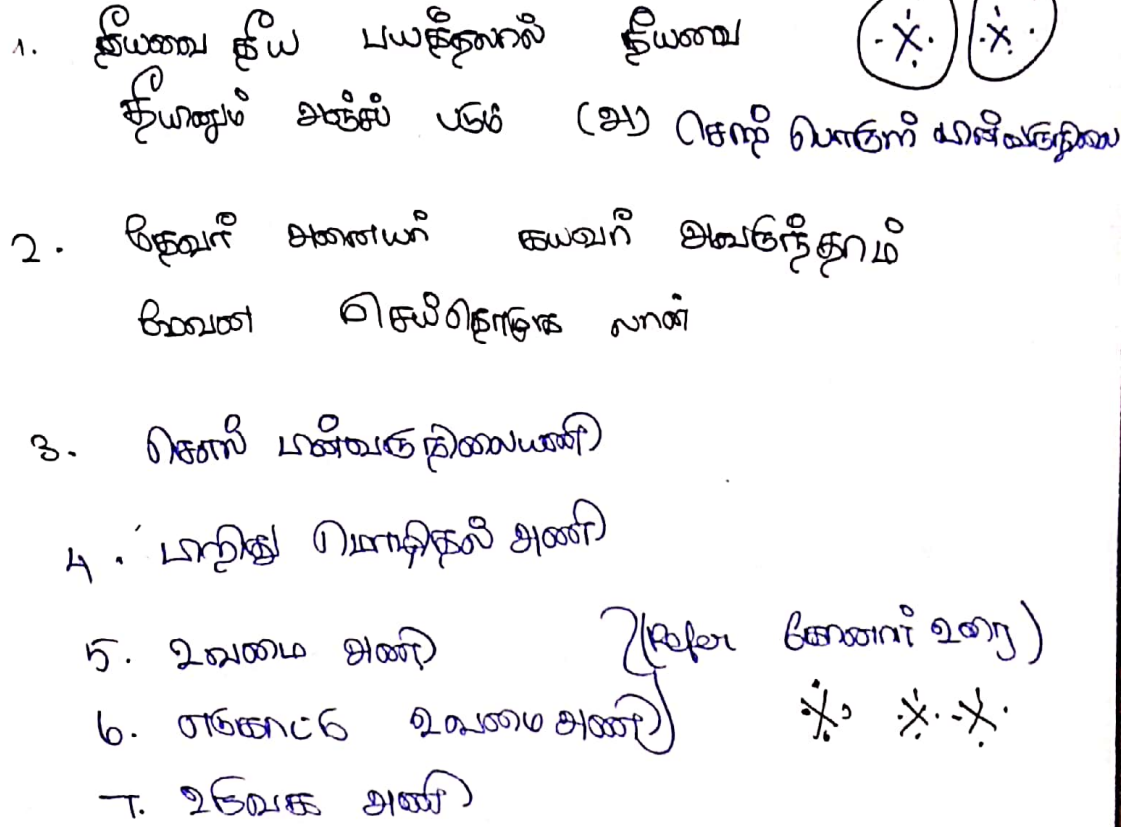 1. தீயவை தீய பயத்தலால் தீயவை
தீயினும் அஞ்சப் படும் (அ) சொற் பொருள் பின்வருநிலை
2. தேவர் அனையர் கயவர் அவருந்தாம்
மேவன செய்தொழுக லான்
3. சொல் பின்வருநிலையணி
4. பிறிது மொழிதல் அணி
5. உவமை அணி (Refer கோனார் உரை)
6. எடுகாட்டு உவமை அணி
7. உருவக அணி